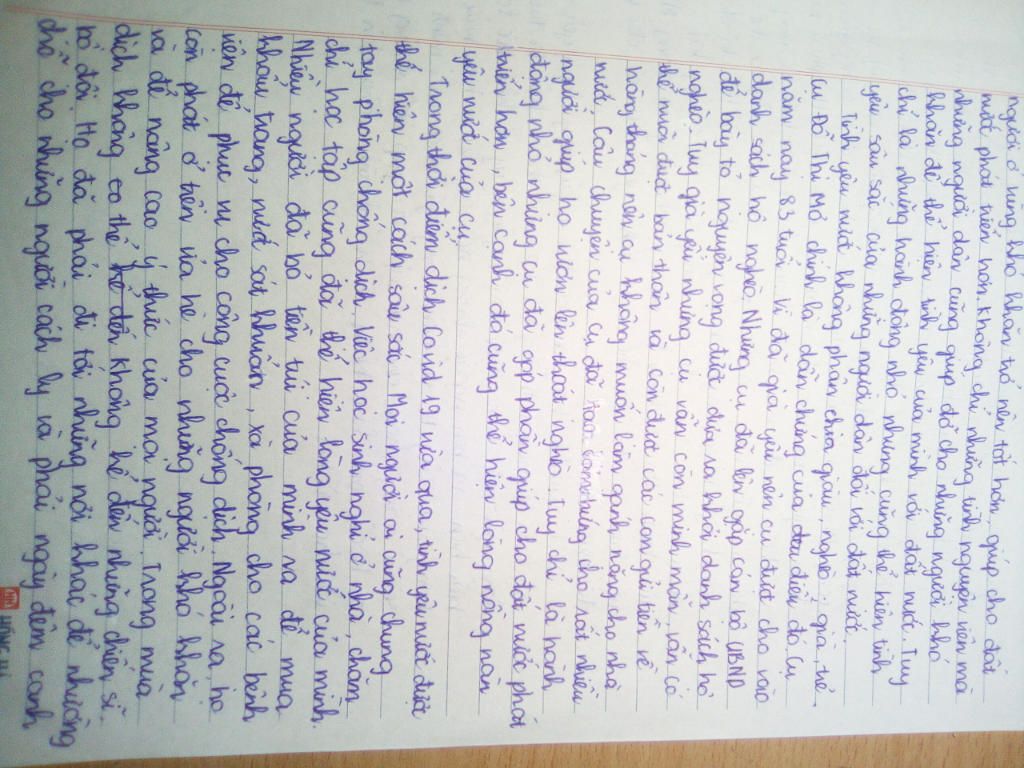 người ở vùng khó khăn trở nên tốt hơn, giúp cho đất
nước phát triển hơn. Không chỉ những tình nguyện viên mà
những người dân cũng giúp đỡ cho những người khó
khăn để thể hiện tình yêu của mình với đất nước. Tuy
chỉ là những hành động nhỏ nhưng cũng thể hiện tình
yêu sâu sắc của những người dân đối với đất nước.
Tình yêu nước không phân chia giàu, nghèo; già, trẻ.
Cụ Đỗ Thị Mơ chính là dẫn chứng của đều điều đó. Cụ
năm nay 83 tuổi. Vì đã già yếu nên cụ được cho vào
danh sách hộ nghèo. Nhưng cụ đã lên gặp cán bộ UBND
để bày tỏ nguyện vọng được đưa ra khỏi danh sách hộ
nghèo. Tuy già yếu nhưng cụ vẫn còn minh mẫn, vẫn có
thể nuôi được bản thân và còn được các con gửi tiền về
hàng tháng nên cụ không muốn làm gánh nặng cho nhà
nước. Câu chuyện của cụ đã truyền cảm hứng cho rất nhiều
người giúp họ vươn lên thoát nghèo. Tuy chỉ là hành
động nhỏ nhưng cụ đã góp phần giúp cho đất nước phát
triển hơn, bên cạnh đó cũng thể hiện lòng nồng nàn
yêu nước của cụ.
Trong thời điểm dịch Covid 19 vừa qua, tình yêu nước được
thể hiện một cách sâu sắc. Mọi người ai cũng chung
tay phòng chống dịch. Việc học sinh nghỉ ở nhà, chăm
chỉ học tập cũng đã thể hiện lòng yêu nước của mình.
Nhiều người đã bỏ tiền túi của mình ra để mua
khẩu trang, nước sát khuẩn, xà phòng cho các bệnh
viện để phục vụ cho công cuộc chống dịch. Ngoài ra, họ
còn phát ở trên vỉa hè cho những người khó khăn
và để nâng cao ý thức của mọi người. Trong mùa
dịch không có thể kể đến không kể đến những chiến sĩ
bộ đội. Họ đã phải đi tới những nơi khác để nhường
chỗ cho những người cách ly và phải ngày đêm canh